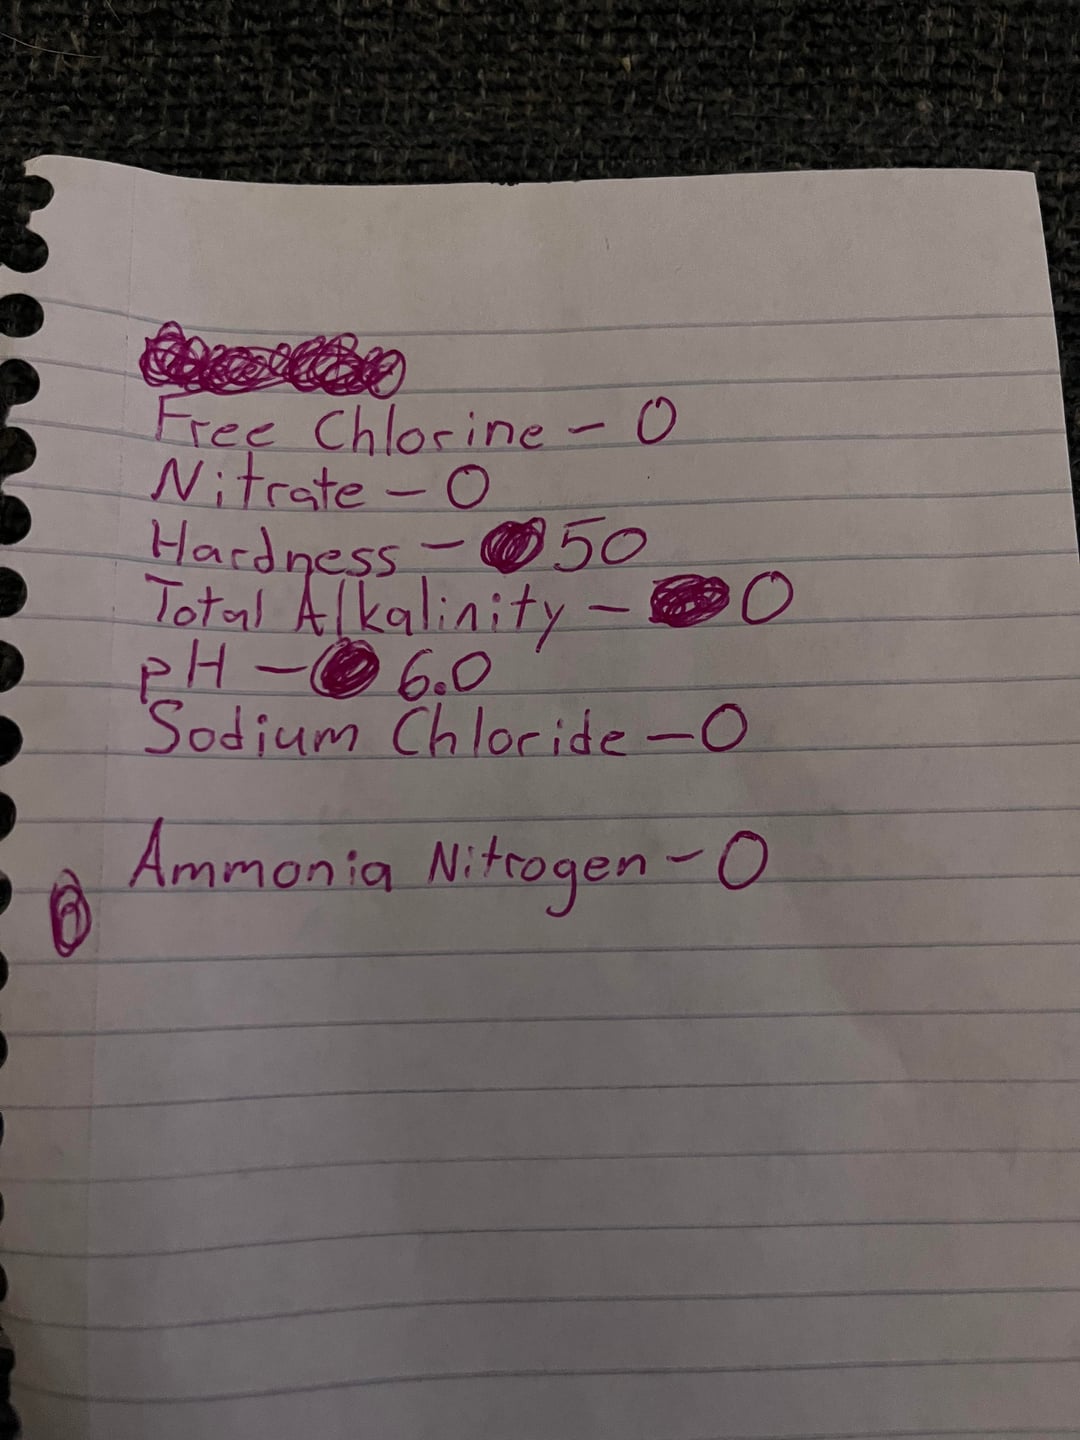 Free Chlorine - 0
Nitrate - 0
Hardness - 50
Total Alkalinity - 0
pH - 6.0
Sodium Chloride - 0
Ammonia Nitrogen - 0